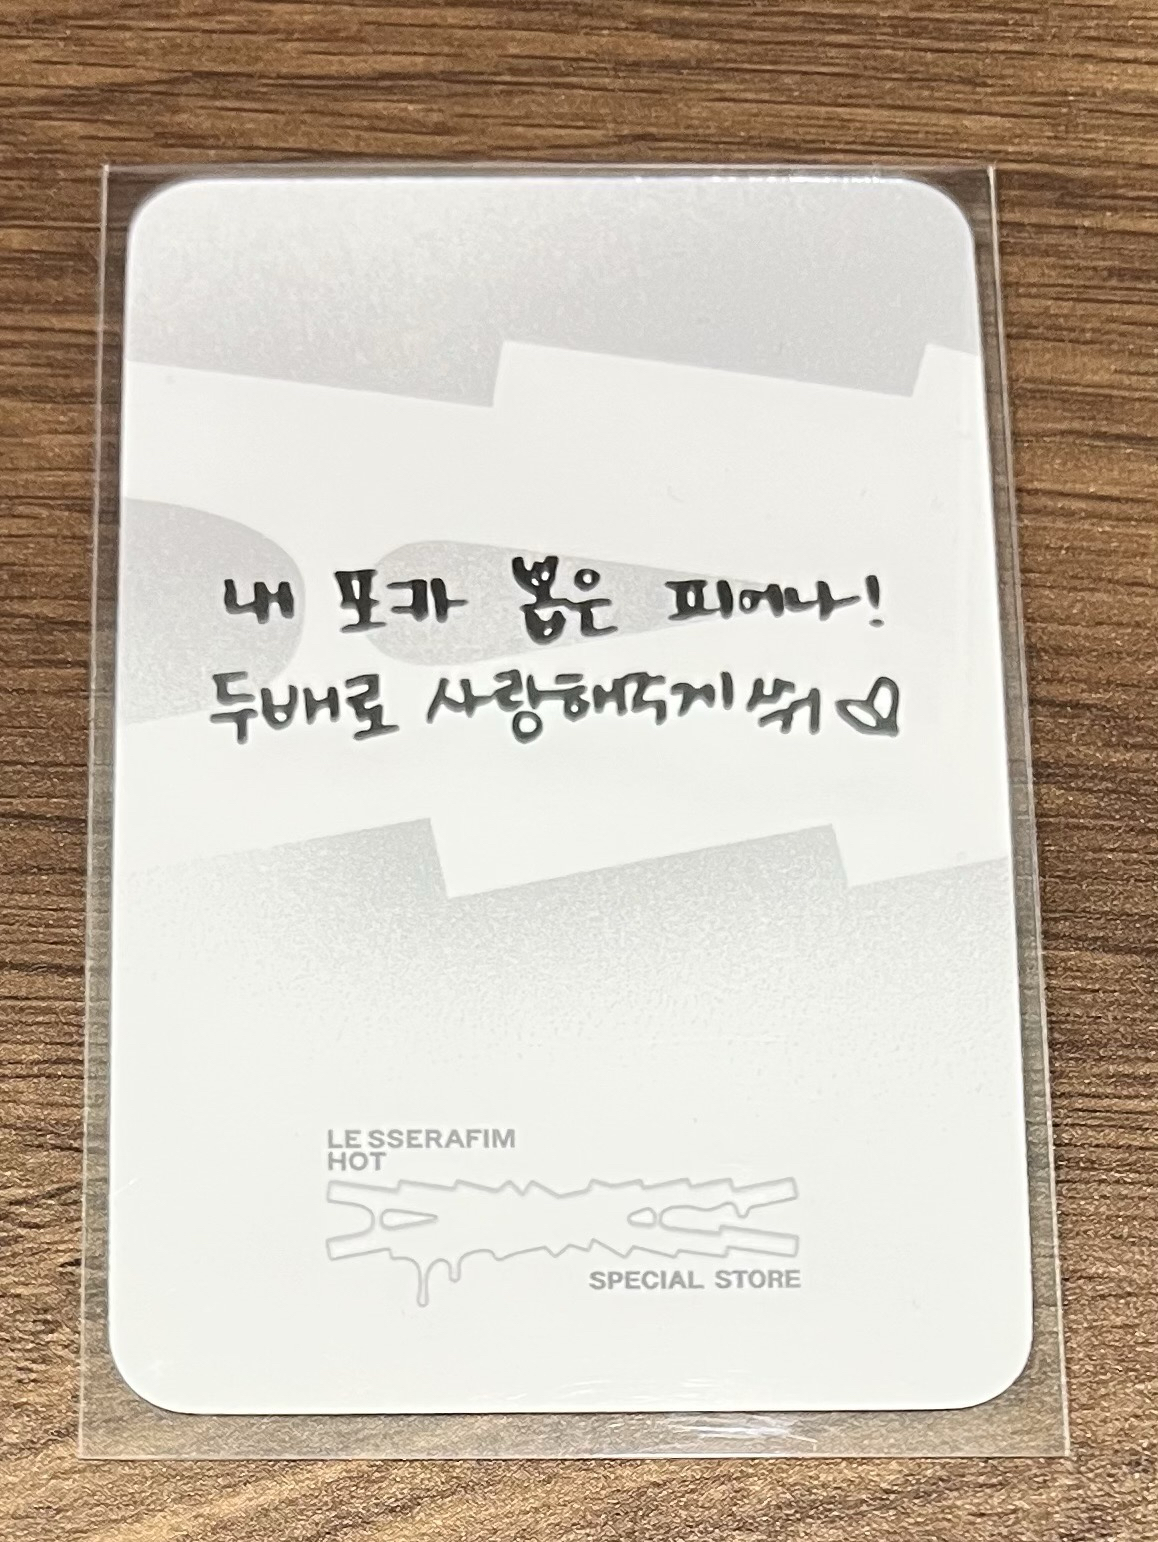 내 포카 뽑은 피어나!
두배로 사랑해주게쒀♡
LE SSERAFIM
HOT
SPECIAL STORE